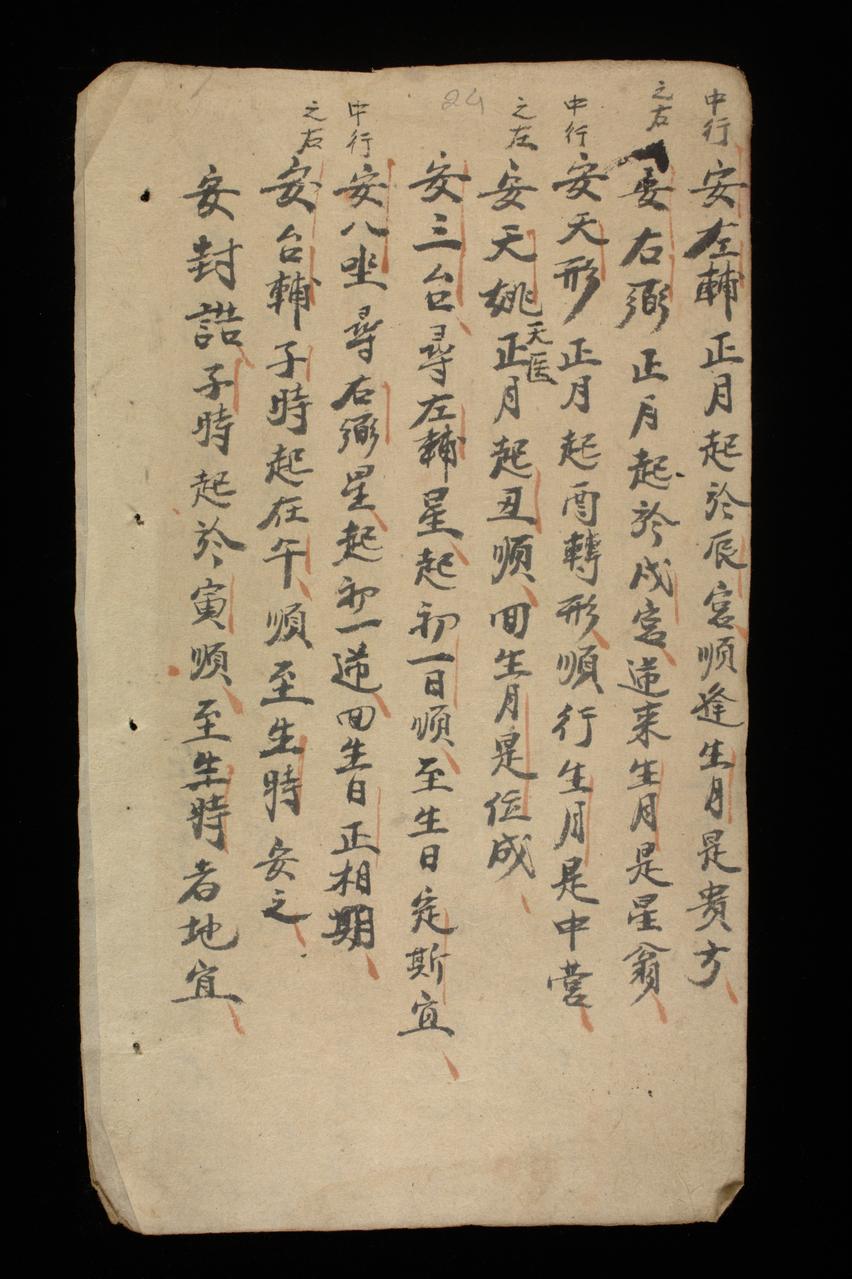 中行
安左輔正月起於辰宮順逢生月是貴方
之右
安右弼正月起於戌宮逆来生月是星翁
中行
安天形正月起酉轉形順行生月是中營
之左
安天姚正月起丑順回生月是位成
天医
24
安三台尋左輔星起初一日順至生日定斯宜
中行
安八坐尋右弼星起初一逆回生日正相期
之右
安台輔子時起在午順至生時安之
安封誥子時起於寅順至生時者地宜